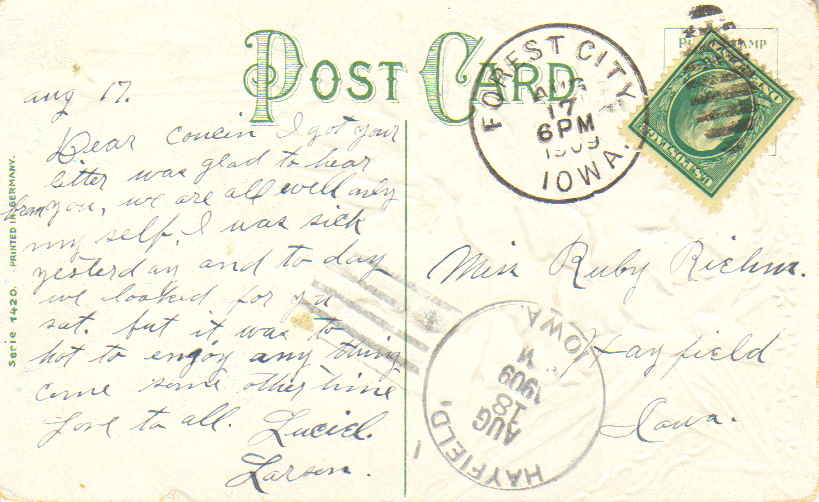 POST CARD
FOREST CITY,
AUG
17
6PM
1909
IOWA.
aug 17.
Dear Cousin I got your
letter was glad to hear
from you, we are all well only
my self. I was sick
yesterday and to day
we looked for yu
sat. but it was to
hot to enjoy any thing
come some other time
Love to all. Luciel.
Larson.
Miss Ruby Riehm.
Hayfield
Iowa.
HAYFIELD,
AUG
18
M
1909
IOWA.
Serie 1420. PRINTED IN GERMANY.